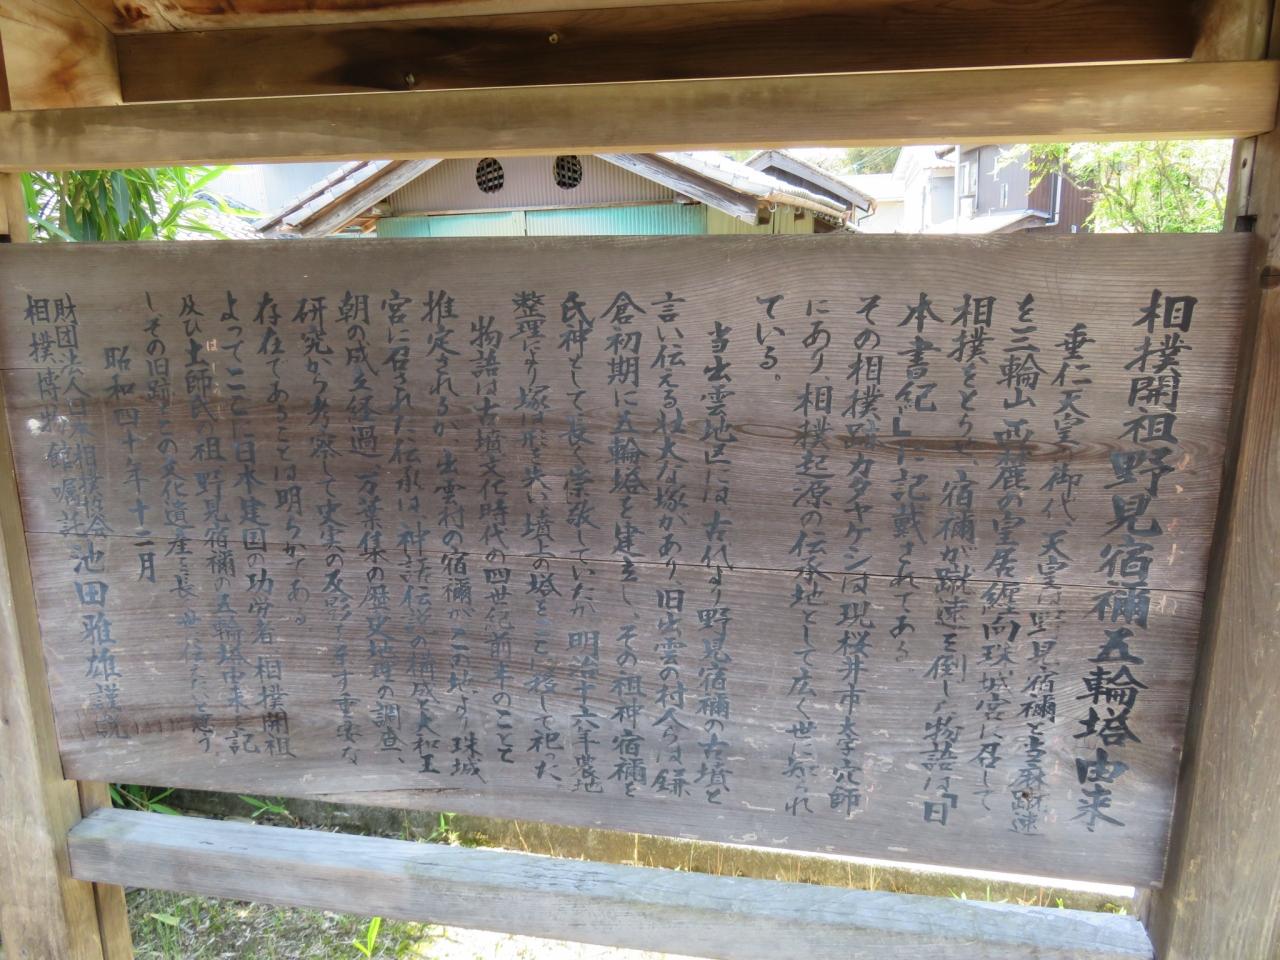 相撲開祖野見宿禰五輪塔由来
垂仁天皇の御代、天皇は野見宿禰と当麻蹴速
を三輪山西麓の皇居纏向珠城宮に召して
相撲をとらせ、宿禰が蹴速を倒した物語は『日
本書紀』に記載されてある
その相撲跡カタヤケシは現桜井市大字穴師
にあり、相撲起源の伝承地として広く世に知られ
ている。
当出雲地区には古代より野見宿禰の古墳と
言い伝える壮大な塚があり、旧出雲の村人らは鎌
倉初期に五輪塔を建立し、その祖神宿禰を
氏神として長く崇敬していたが、明治十六年農地
整理により塚は形を失い墳上の塔をここに移して祀った。
物語は古墳文化時代の四世紀前半のことと
推定されるが、出雲村の宿禰がこの地より珠城
宮に召された伝承は、神話伝説の構成と大和王
朝の成立経過、万葉集の歴史地理の調査、
研究から考察して史実の反影を示す重要な
存在であることは明らかである。
よってここに日本建国の功労者、相撲開祖
及び土師氏の祖野見宿禰の五輪塔由来を記
し、その旧跡とこの文化遺産を長く世に伝えたいと思う
昭和四十年十二月
財団法人日本相撲協会
相撲博物館嘱託 池田雅雄謹説